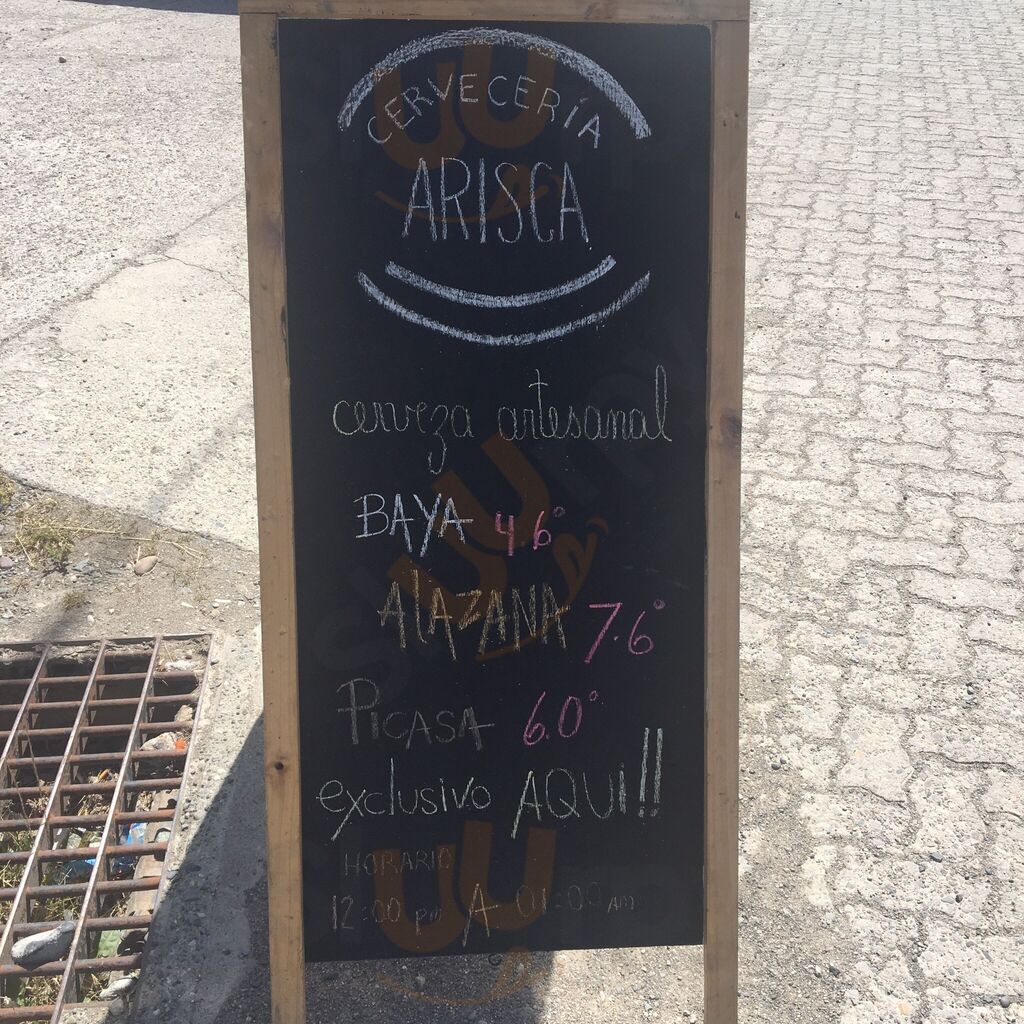 CERVECERÍA
ARISCA
cerveza artesanal
BAYA 4.6°
AlAZANA 7.6°
PICASA 6.0°
exclusivo AQUI!!
HORARIO
12:00 pm A 01:00 AM